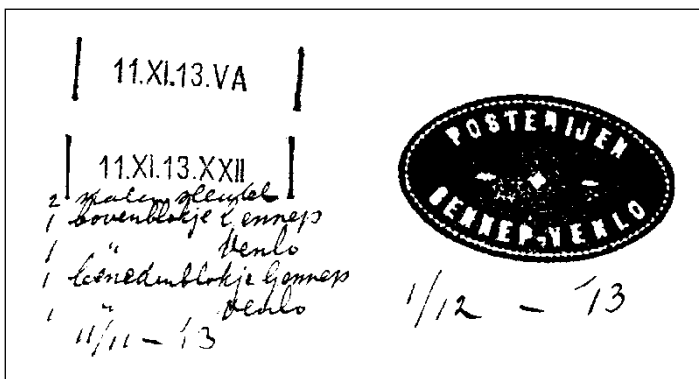 11.XI.13.VA
11.XI.13.XXII
2 stalen sleutel
1 bovenblokje Gennep
1 " Venlo
1 benedenblokje Gennep
1 " Venlo
11/11 – 13
POSTERIJEN
GENNEP-VENLO
1/12 – 13